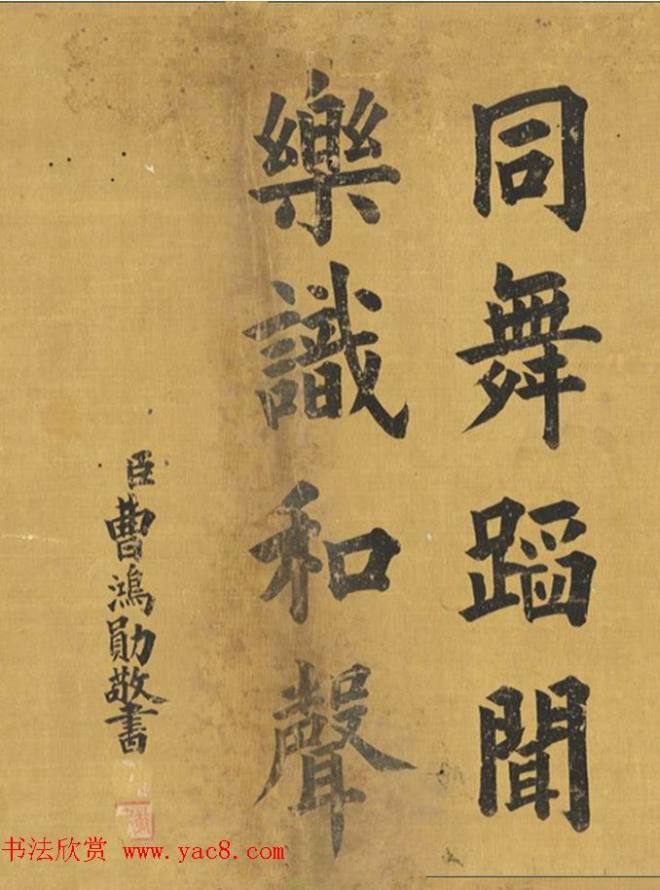 同舞蹈聞
樂識和聲
臣曹鴻勛敬書
书法欣赏 www.yac8.com